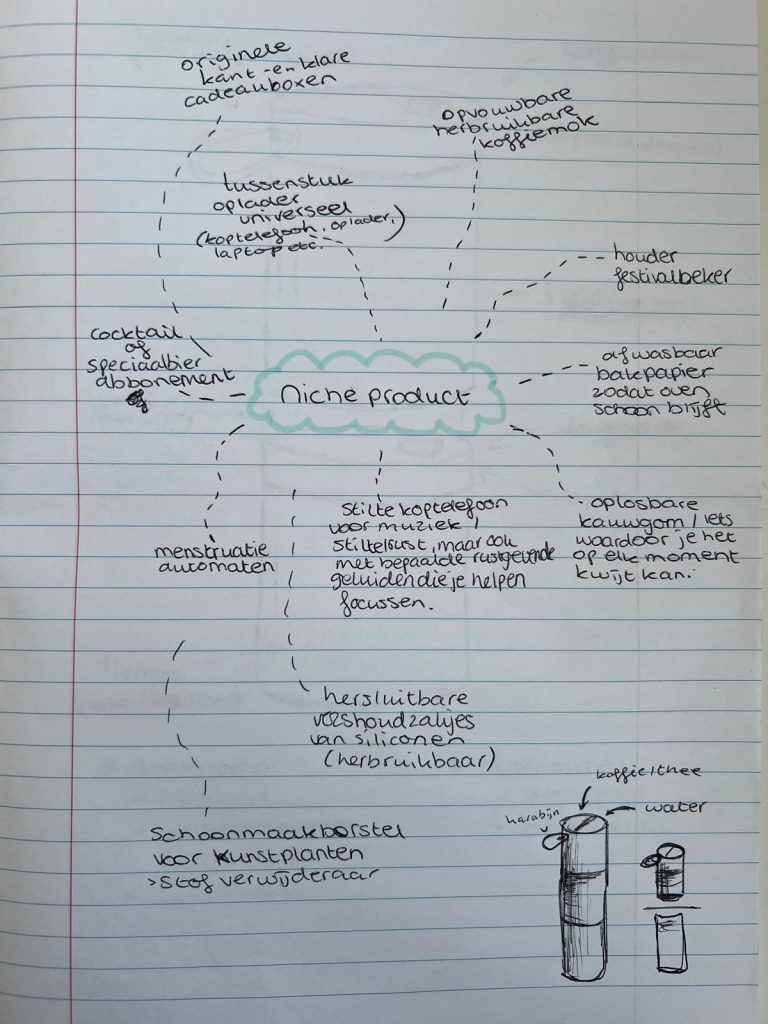 originele
kant-en klare
cadeauboxen
opvouwbare
herbruikbare
koffiemok
tussenstuk
oplader
universeel
(koptelefoon, oplader,
laptop etc.)
houder
festivalbeker
cocktail
of
speciaalbier
abbonement
niche product
afwasbaar
bakpapier
zodat oven
schoon blijft
menstruatie
automaten
stilte koptelefoon
voor muziek /
stilte/rust, maar ook
met bepaalde rustgevende
geluiden die je helpen
focussen.
oplosbare
kauwgom / iets
waardoor je het
op elk moment
kwijt kan.
hersluitbare
vershoudzakjes
van siliconen
(herbruikbaar)
schoonmaakborstel
voor kunstplanten
>stof verwijderaar
koffie/thee
water
harabijn